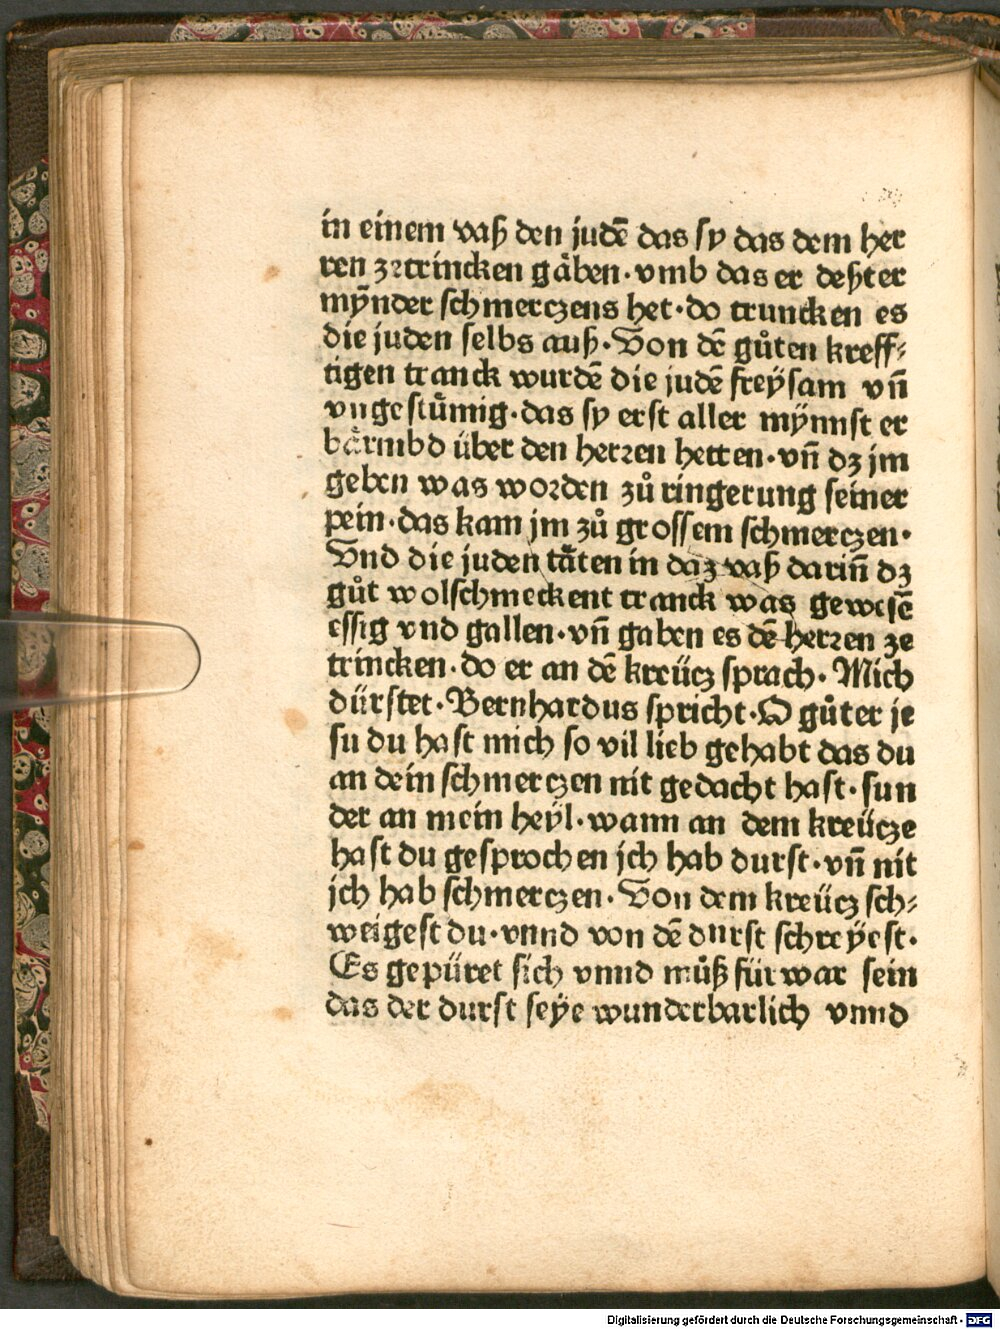 in einem vaß den judē das sy das dem her
ren zetrincken gåben·vmb das er deßter
mÿnder schmerczens het·do truncken es
die juden selbs auß·Von dē gůten kreff⸗
tigen tranck wurdē die judē freÿsam vñ
vngestůmig·das sy erst aller mÿnnst er
bårmbd über den herꝛen hetten·vñ dz jm
geben was woꝛden zů ringerung seiner
pein·das kam jm zů grossem schmerczen·
Vnd die juden tåten in daz vaß darinñ dz
gůt wolschmeckent tranck was gewesē
essig vnd gallen·vñ gaben es dē herꝛen ze
trincken·do er an dē kreücz sprach·Mich
dürstet·Bernhardus spricht·O gůter je
su du hast mich so vil lieb gehabt das du
an dein schmerczen nit gedacht hast·sun
der an mein heÿl·wann an dem kreücze
hast du gesprochen jch hab durst·vñ nit
jch hab schmerczen·Von dem kreücz sch⸗
weigest du·vnnd von dē durst schreÿest·
Es gepüret sich vnnd můß fürwar sein
das der durst seÿe wunderbarlich vnnd
Digitalisierung gefördert durch die Deutsche Forschungsgemeinschaft - DFG